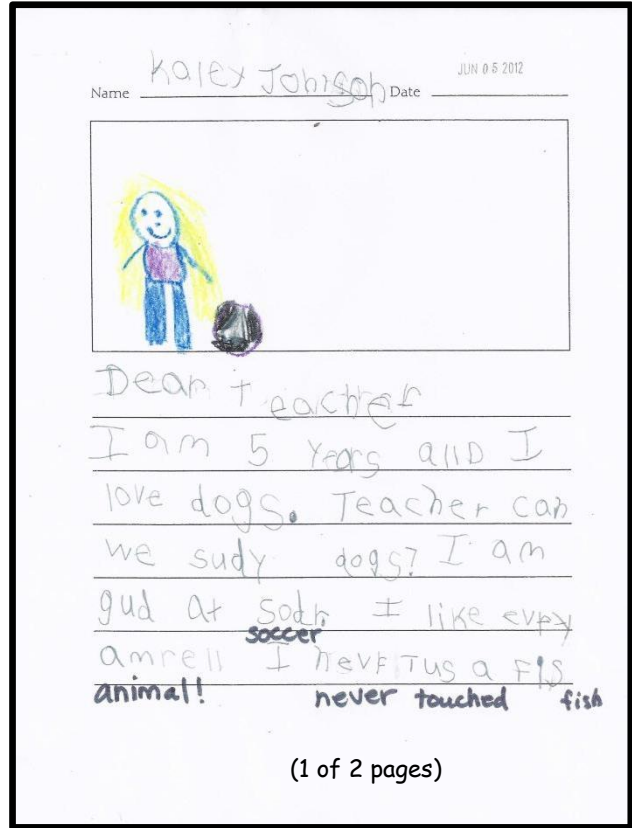 Name Kaley Johnson Date JUN 05 2012
Dear Teacher
I am 5 years allD I
love dogs. Teacher can
we sudy dogs? I am
gud at Sodr I like evry
soccer
amrell I nevr Tus a Fis
animal! never touched fish
(1 of 2 pages)